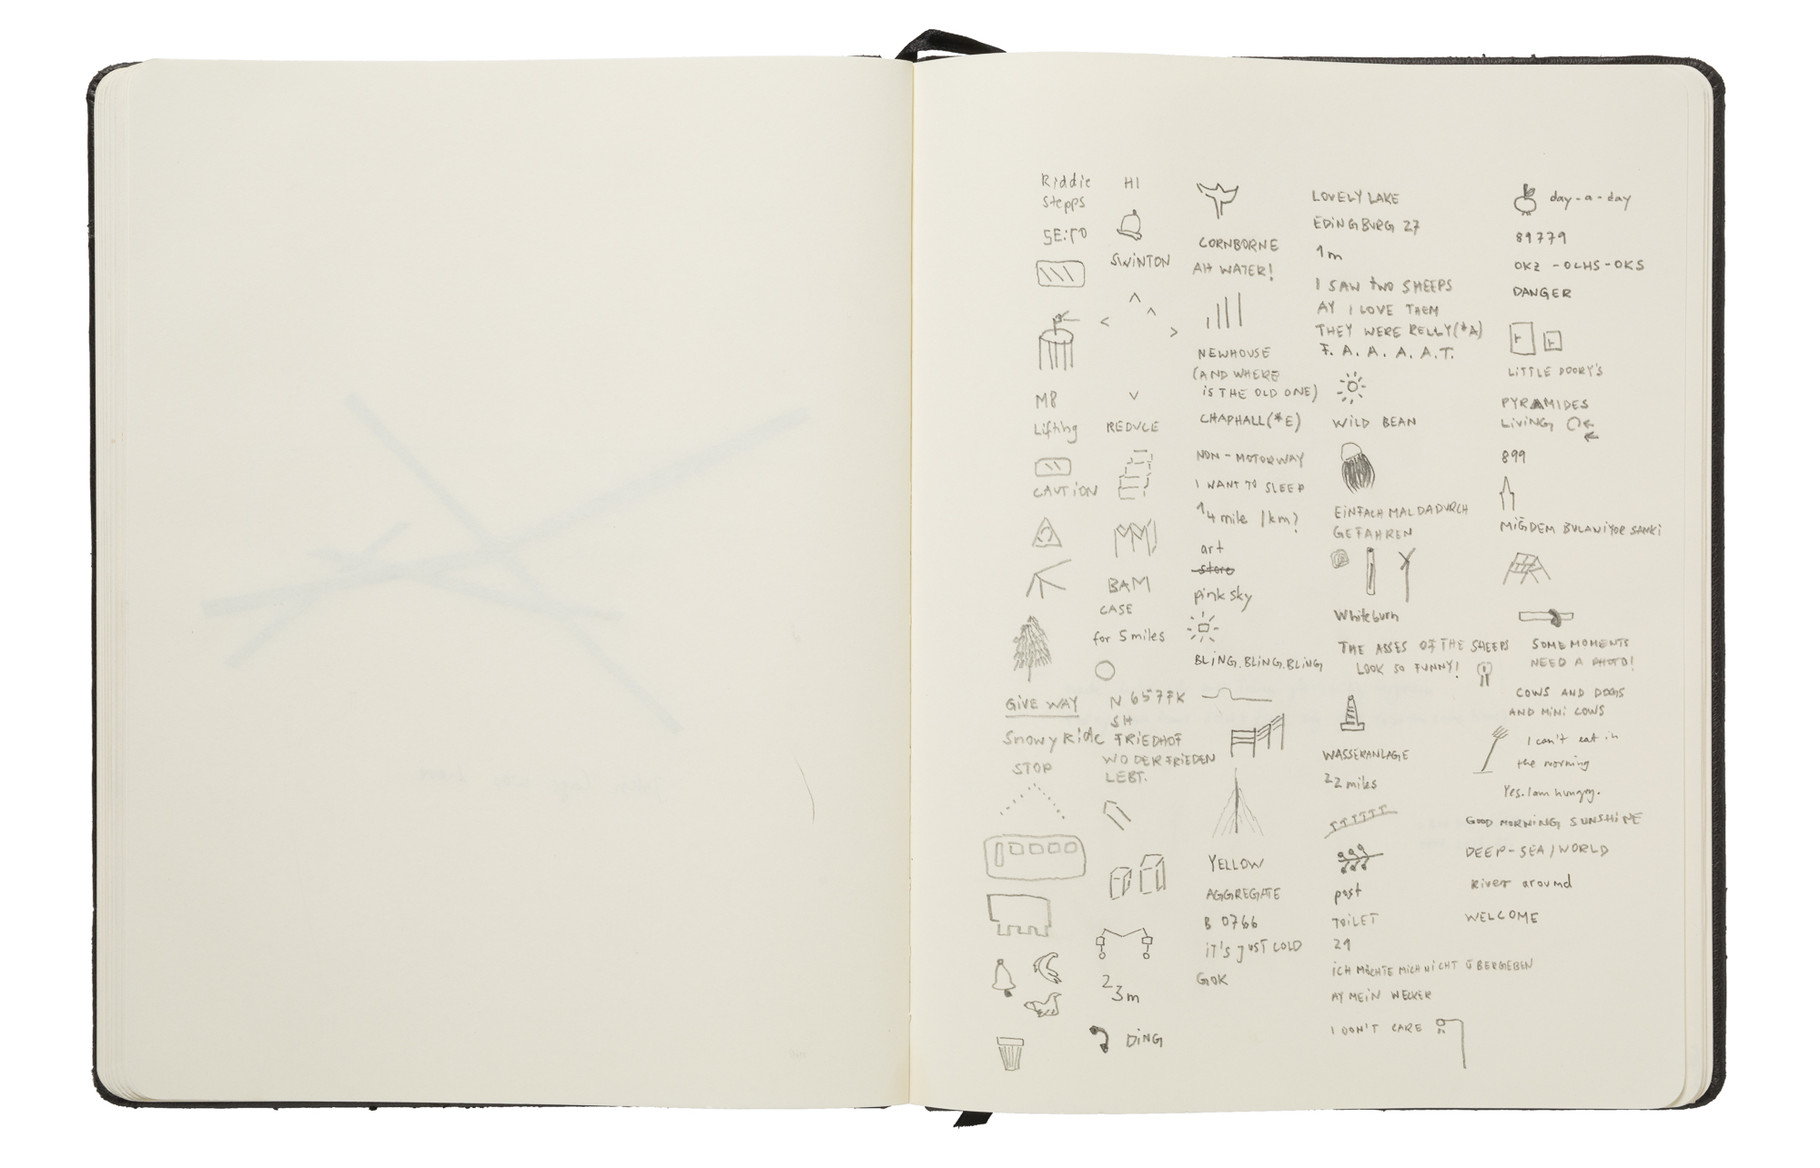 Riddie
Stepps
SE:TO
M8
Lifting
CAUTION
GIVE WAY
Snowy Ride
STOP
HI
SWINTON
REDUCE
BAM
CASE
for 5 miles
N 6577K
SH
FRIEDHOF
WO DER FRIEDEN
LEBT.
2
3m
DING
CORNBORNE
AH WATER!
NEWHOUSE
(AND WHERE
IS THE OLD ONE)
CHAPHALL(*E)
NON-MOTORWAY
I WANT TO SLEEP
1/4 mile /km?
art
store
pink sky
BLING.BLING.BLING
YELLOW
AGGREGATE
B 0766
IT'S JUST COLD
GOK
LOVELY LAKE
EDINGBURG 27
1m
I SAW TWO SHEEPS
AY I LOVE THEM
THEY WERE RELLY(*A)
F. A. A. A. A.T.
WILD BEAN
EINFACH MAL DADURCH
GEFAHREN
Whiteburn
THE ASSES OF THE SHEEPS
LOOK SO FUNNY!
WASSERANLAGE
22 miles
post
TOILET
29
ICH MÖCHTE MICH NICHT ÜBERGEBEN
AY MEIN WECKER
I DON'T CARE
day-a-day
89779
OKZ -OLHS-OKS
DANGER
LITTLE DOORY'S
PYRAMIDES
LIVING
899
MIĞDEM BULANIYOR SANKI
SOME MOMENTS
NEED A PHOTO!
COWS AND DOGS
AND MINI COWS
I can't eat in
the morning
Yes. I am hungry.
GOOD MORNING SUNSHINE
DEEP-SEA/WORLD
River around
WELCOME